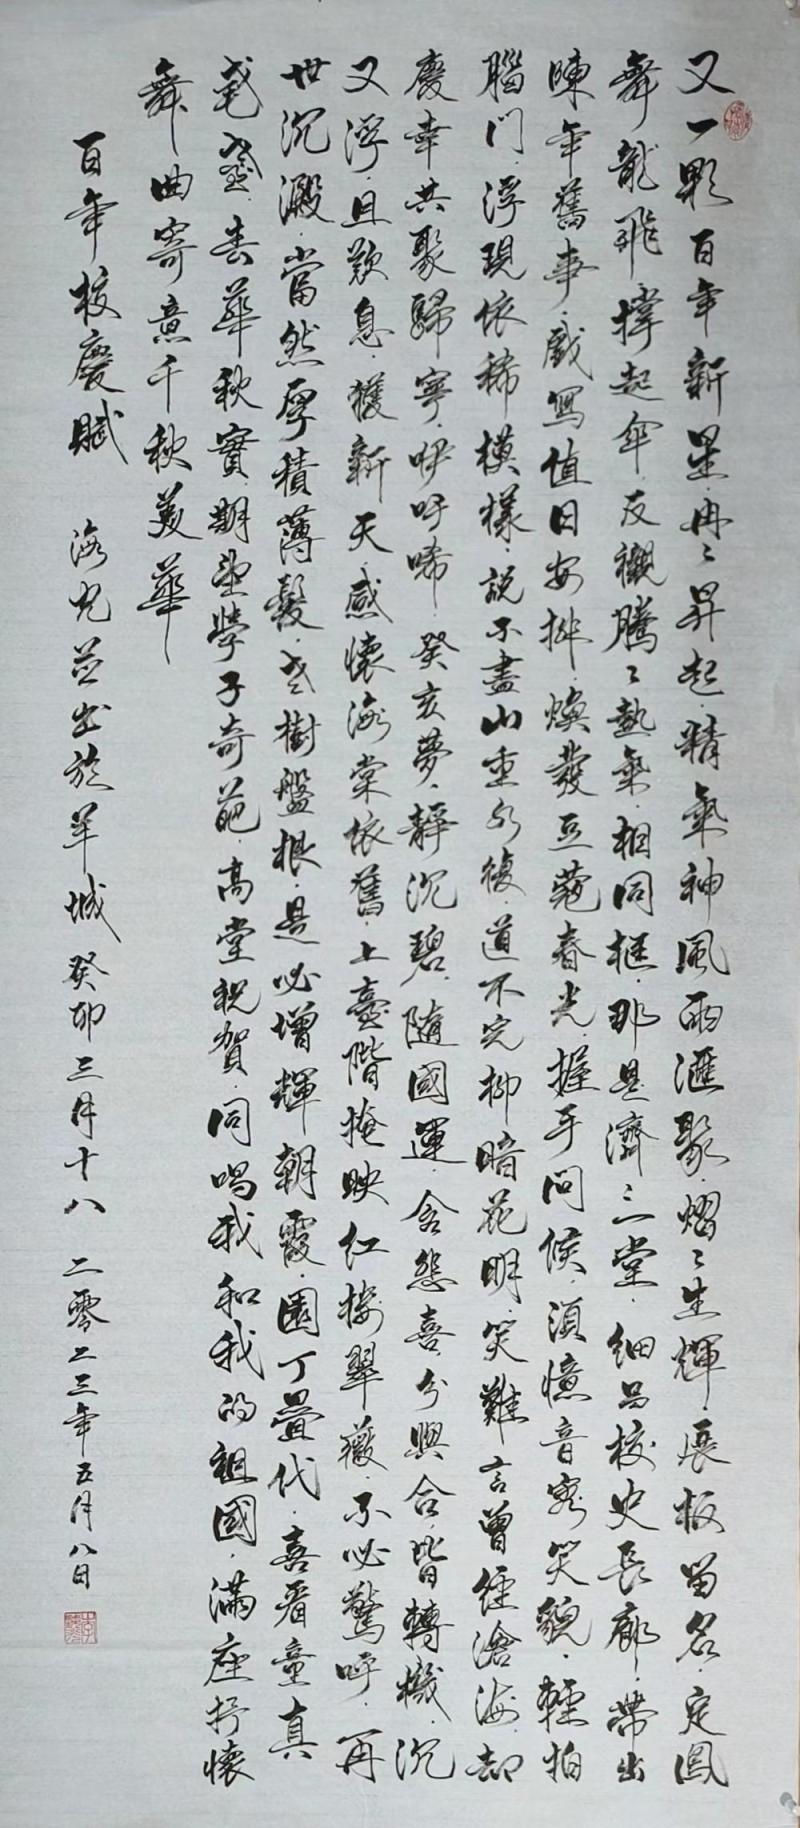 又一顆百年新星冉々昇起.精氣神風雨滙聚.熠々生輝.展板留名.定鳳
舞龍飛.撑起傘.反襯騰々熱氣.相同框.那是濟三堂.細品校史長廊.帶出
陳年舊事.戲寫值日安排.煥發豆蔻春光.握手問候.須憶音容笑貌.輕拍
腦門.浮現依稀模樣.説不盡山重水複.道不完柳暗花明.笑難言曾經滄海.却
慶幸共聚歸寧.咿吁唏.癸亥夢.靜沉碧.隨國運.含悲喜.分與合.皆轉機.沉
又浮.且歎息.獲新天.感懷海棠依舊.上臺階掩映紅樓翠薇.不必驚呼.再
世沉澱.當然厚積薄發.老樹盤根.是必增輝朝霞.園丁疊代.喜看童真
耄耋.春華秋實.期望學子奇葩.高堂祝賀.同唱我和我的祖國.滿座抒懷
舞曲寄意千秋美華
百年校慶賦 海允並書於羊城 癸卯三月十八 二零二三年五月八日